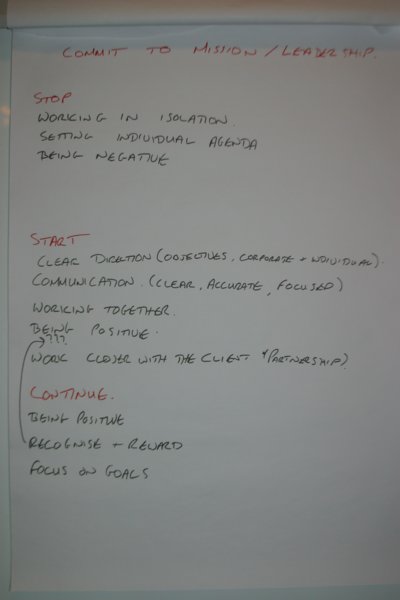 COMMIT TO MISSION / LEADERSHIP.
STOP
WORKING IN ISOLATION.
SETTING INDIVIDUAL AGENDA
BEING NEGATIVE
START
CLEAR DIRECTION (OBJECTIVES, CORPORATE + INDIVIDUAL).
COMMUNICATION. (CLEAR, ACCURATE, FOCUSED)
WORKING TOGETHER.
BEING POSITIVE.
???.
WORK CLOSER WITH THE CLIENT "PARTNERSHIP?
CONTINUE.
BEING POSITIVE
RECOGNISE + REWARD
FOCUS ON GOALS